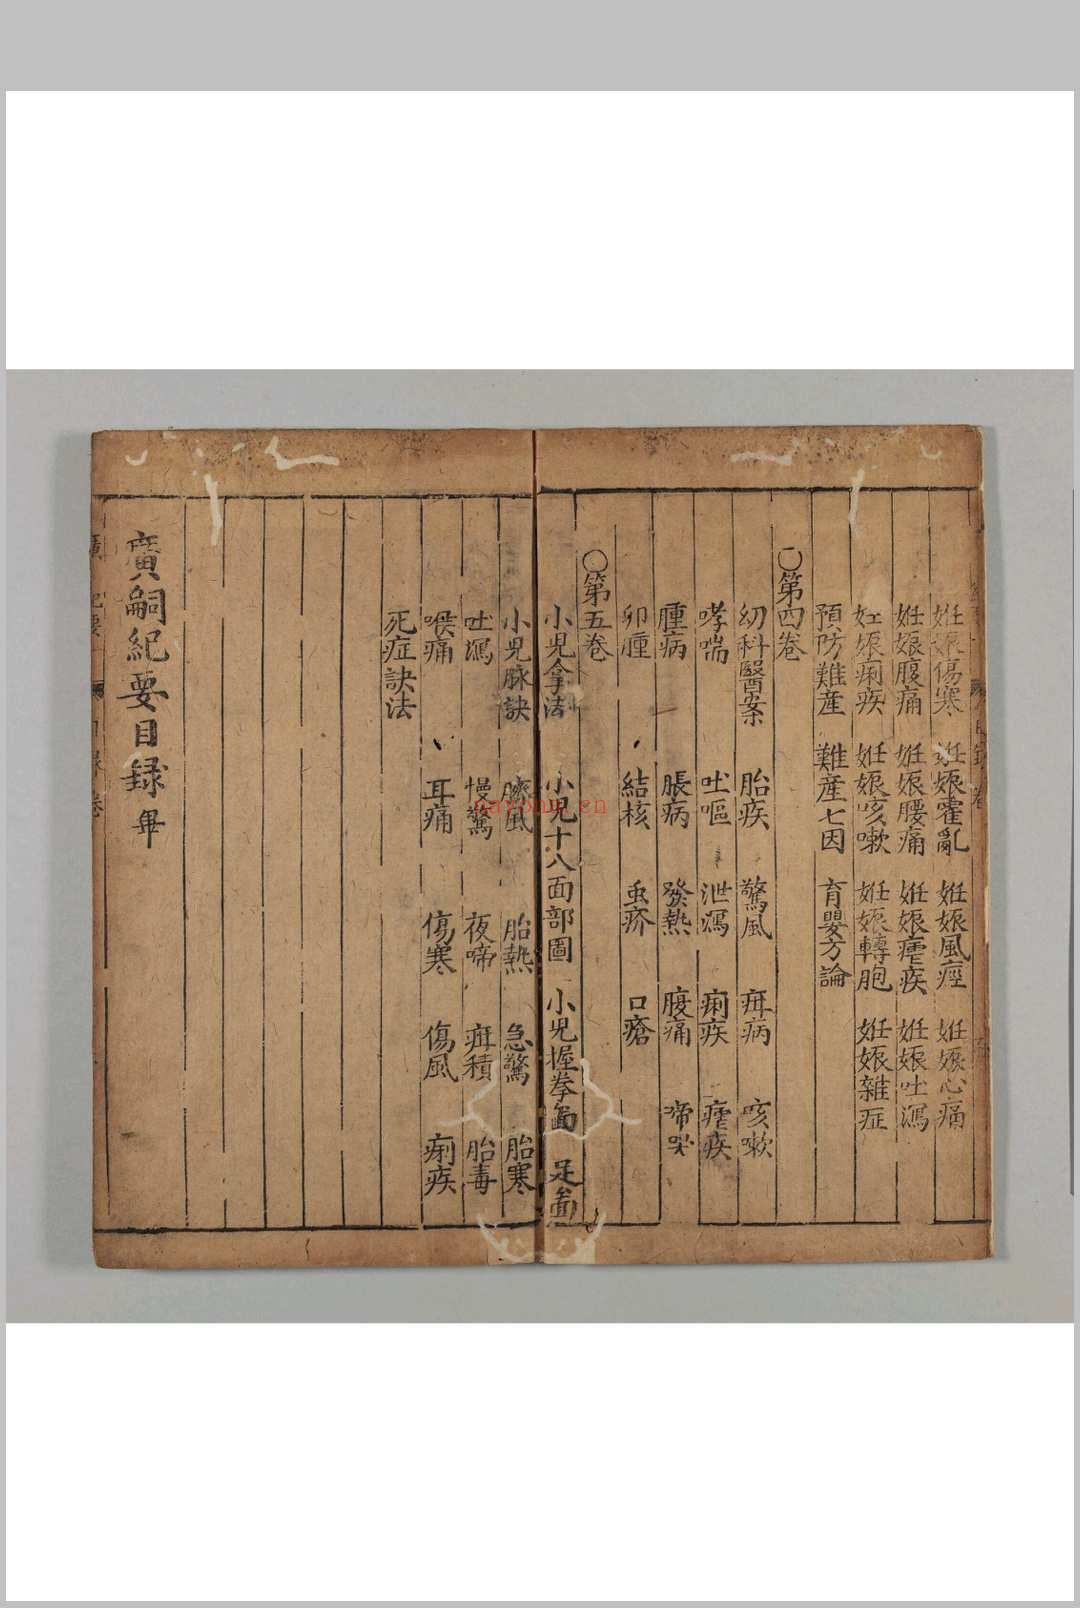 妊娠傷寒 妊娠霍亂 妊娠風痙 妊娠心痛
妊娠腹痛 妊娠腰痛 妊娠瘧疾 妊娠吐瀉
妊娠痢疾 妊娠咳嗽 妊娠轉胞 妊娠雜症
預防難產 難產七因 育嬰方論
○第四卷
幼科醫案 胎疾 驚風 疳病 咳嗽
哮喘 吐嘔 泄瀉 痢疾 瘧疾
腫病 脹病 發熱 腹痛 啼哭
卵腫 結核 虫疥 口瘡
○第五卷
小兒拿法 小兒十八面部圖 小兒握拳啚 足啚
小兒脉訣 臍風 胎熱 急驚 胎寒
吐瀉 慢驚 夜啼 疳積 胎毒
喉痛 耳痛 傷寒 傷風 痢疾
死症訣法
廣嗣紀要目録畢